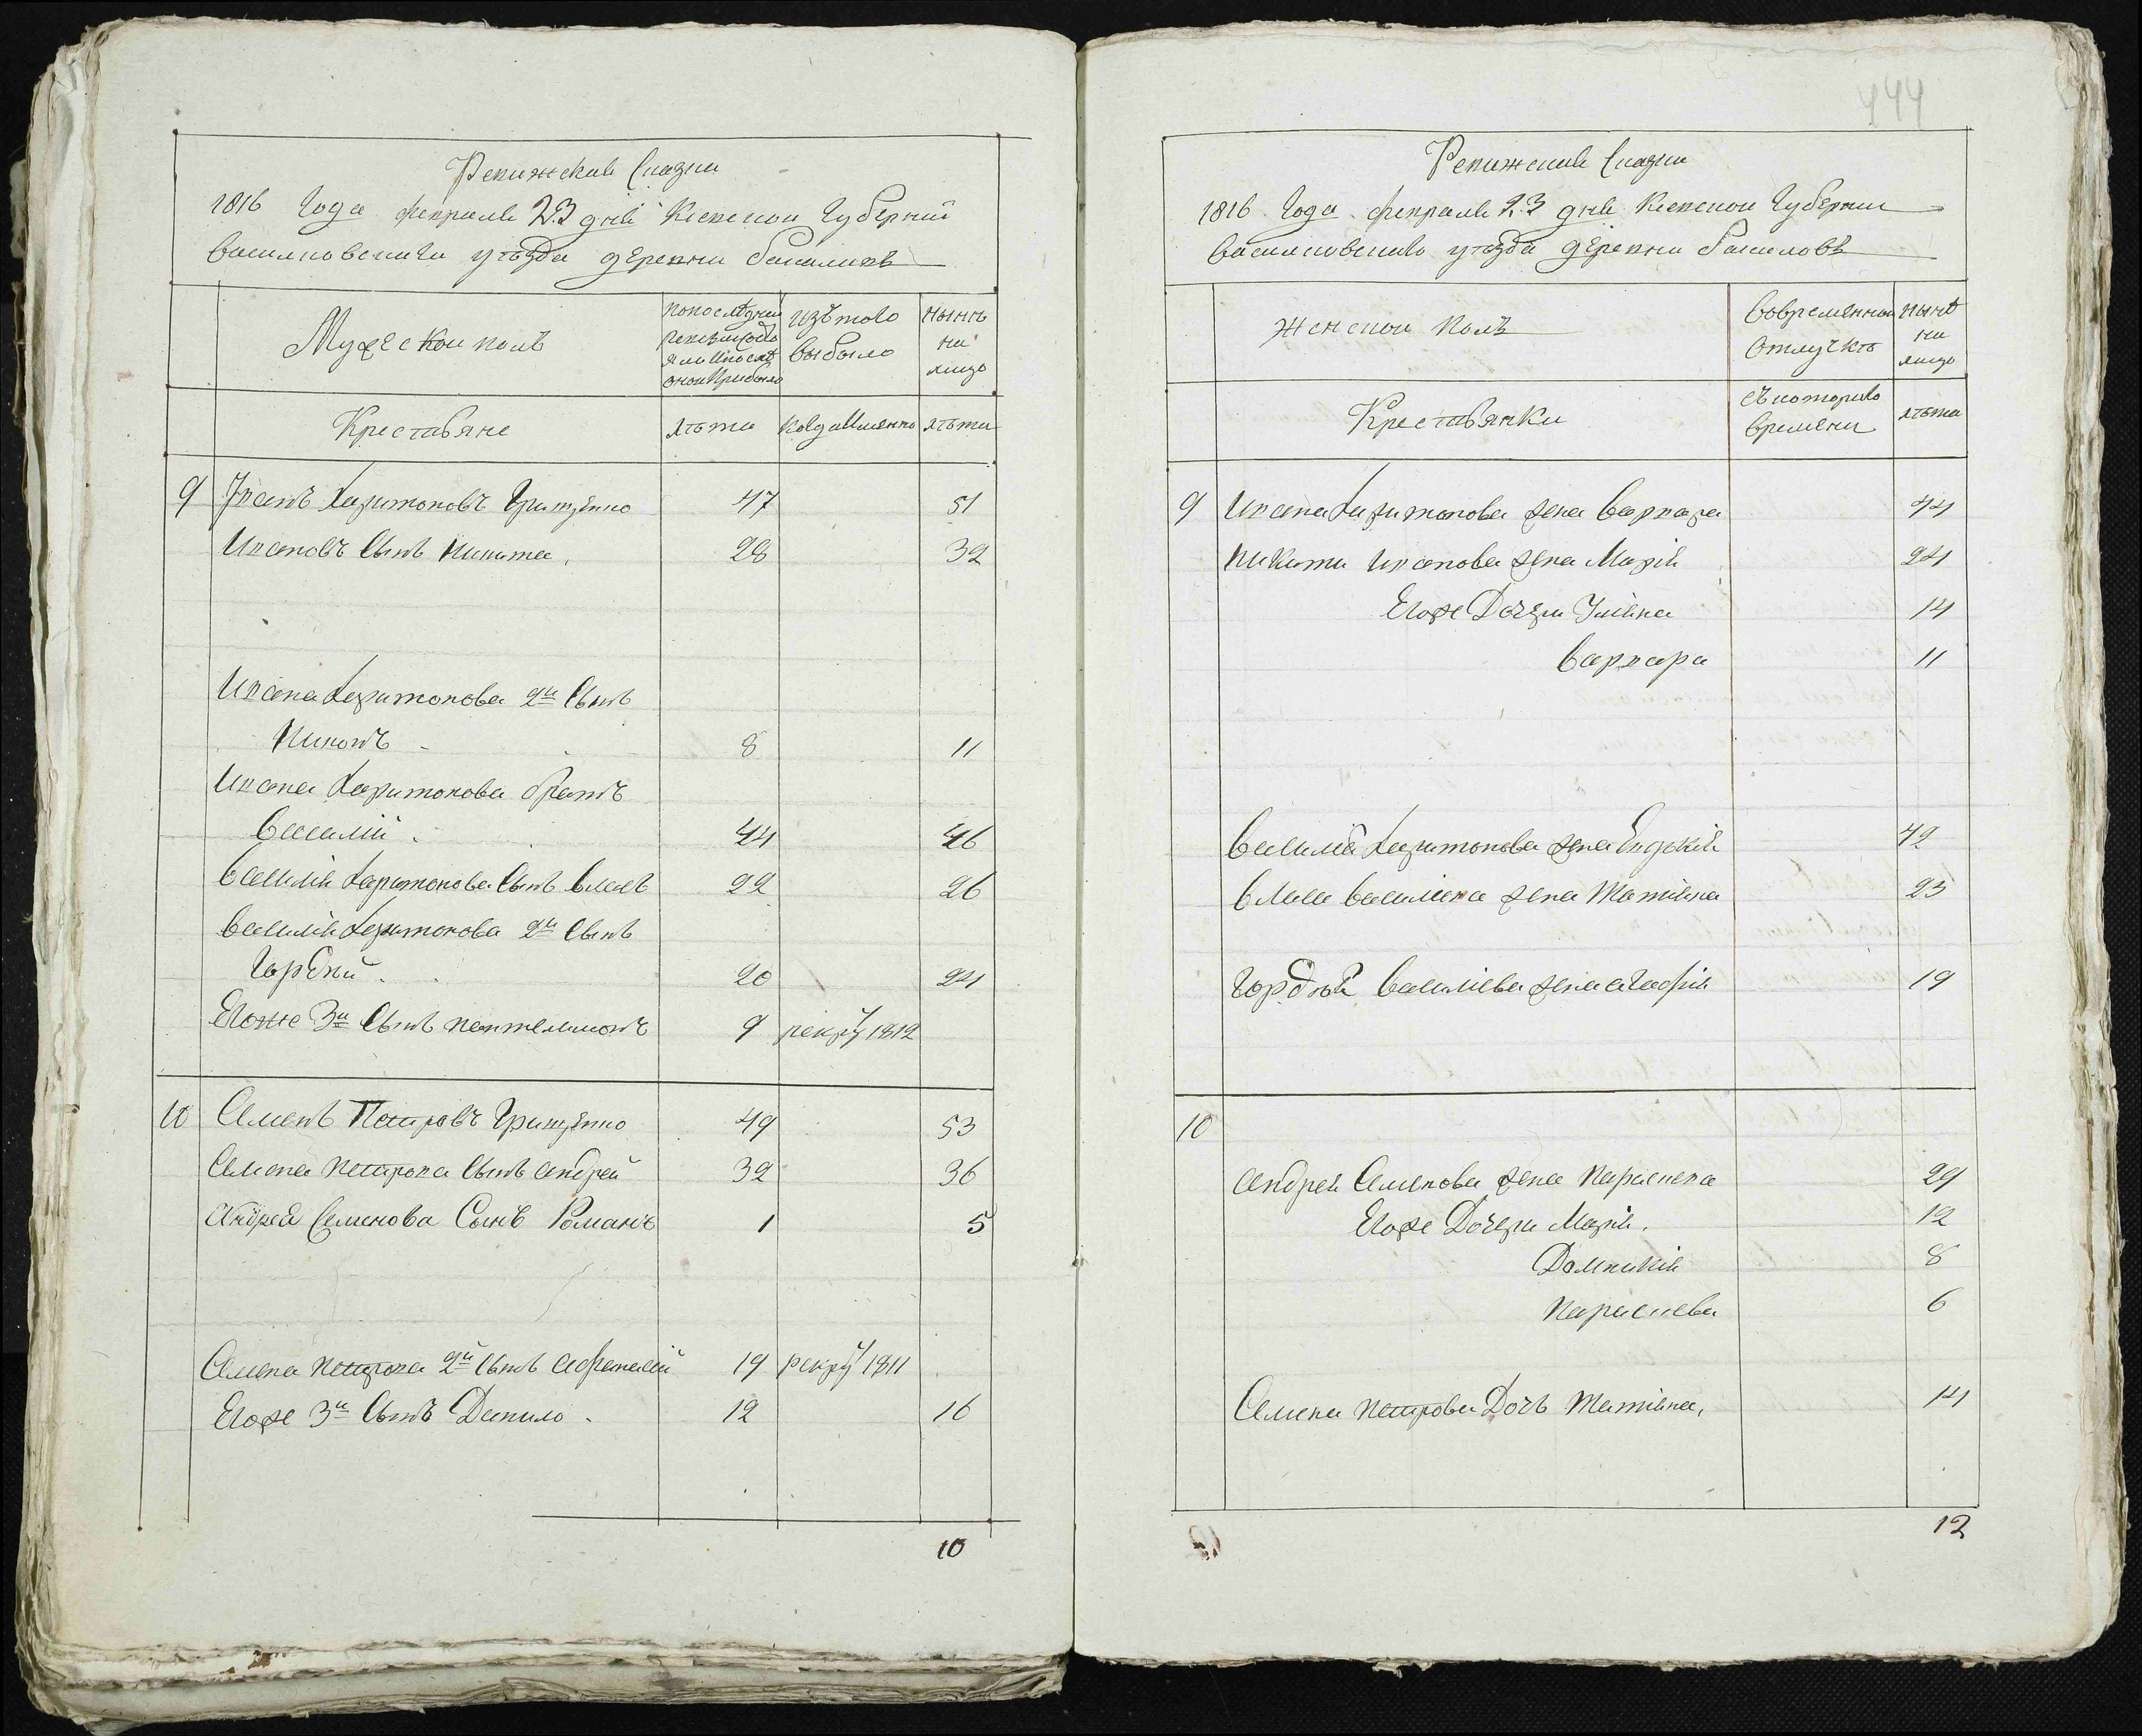 Ревижскиѣ Сказки
1816 Года февраля 23 дня Киевской Губерніи
Василковскаго уѣзда деревни
Мужескои полъ
изъ того выбыло
нынѣ на лицо
Крестьяне
лѣта
когда именно
лѣта
9 Иванъ Харитоновъ Грищенко 47 51
Ивановъ Сынъ Никита 28 32
Ивана Харитонова 2й Сынъ
Никонъ 8 11
Ивана Харитонова братъ
Василій 44 46
Василія Харитонова Сынъ Власъ 22 26
Василія Харитонова 2й Сынъ
Гордѣй 20 24
Егоже 3й Сынъ пантелимонъ 9 рекру 1812
10 Семенъ Петровъ Грищенко 49 53
Семена петрова Сынъ андрей 32 36
Андрея Семенова Сынъ Романъ 1 5
Семена петрова 2й Сынъ афанасій 19 рекру 1811
Егоже 3й Сынъ Данило 12 16
10
444
Ревижскиѣ Сказки
1816 Года февраля 23 дня Киевской Губерніи
Василковскаго уѣзда деревни
Женской полъ
Вовременной отлучкѣ
ныне на лицо
Крестьянки
съ которого времени
лѣта
9 Ивана Харитонова жена Варвара 44
Никиты Иванова жена Марія 24
Егоже Дочери Уліяна 14
Варвара 11
Василія Харитонова жена Евдокія 42
Власа Василіева жена Татіяна 23
Гордѣя Василіева жена агафія 19
10
андрея Семенова жена параскева 29
Егоже Дочери Марія 12
Домникія 8
параскева 6
Семена петрова Дочь Татіяна 14
12